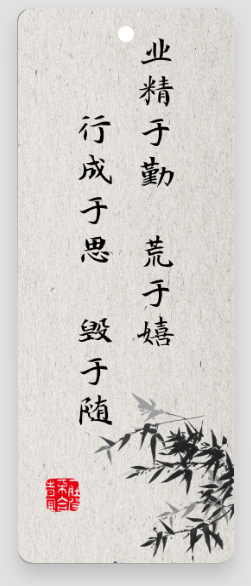 业精于勤 荒于嬉
行成于思 毁于随